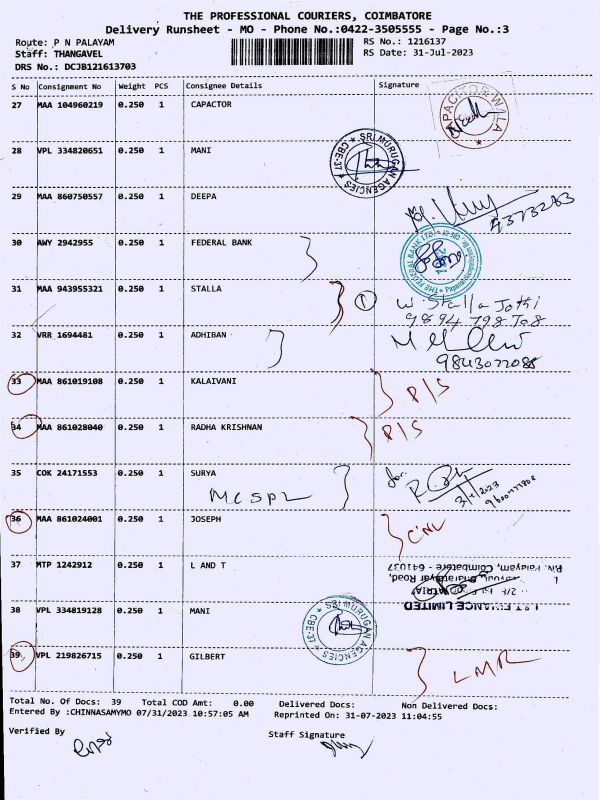 THE PROFESSIONAL COURIERS, COIMBATORE
Delivery Runsheet - MO - Phone No.:0422-3505555 - Page No.:3
Route: P N PALAYAM RS No.: 1216137
Staff: THANGAVEL RS Date: 31-Jul-2023
DRS No.: DCJB121613703
S No Consignment No Weight PCS Consignee Details Signature
27 MAA 104960219 0.250 1 CAPACTOR
28 VPL 334820651 0.250 1 MANI
SRI MURUGAN AGENCIES
CBE-37
29 MAA 860750557 0.250 1 DEEPA
30 AWY 2942955 0.250 1 FEDERAL BANK
THE FEDERAL BANK LTD
31 MAA 943955321 0.250 1 STALLA
1 W Stalla Jothi
32 VRR 1694481 0.250 1 ADHIBAN
33 MAA 861019108 0.250 1 KALAIVANI P/S
34 MAA 861028040 0.250 1 RADHA KRISHNAN P/S
35 COK 24171553 0.250 1 SURYA
MCSPL
36 MAA 861024001 0.250 1 JOSEPH CNL
37 MTP 1242912 0.250 1 L AND T
P.N. Palayam, Coimbatore - 641037
L&T FINANCE LIMITED
38 VPL 334819128 0.250 1 MANI
SRI MURUGAN AGENCIES
CBE-37
39 VPL 219826715 0.250 1 GILBERT LMR
Total No. Of Docs: 39 Total COD Amt: 0.00 Delivered Docs: Non Delivered Docs:
Entered By :CHINNASAMYMO 07/31/2023 10:57:05 AM Reprinted On: 31-07-2023 11:04:55
Verified By Staff Signature